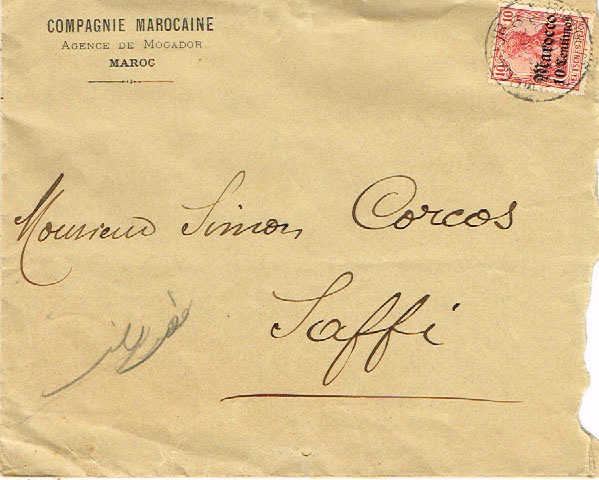 COMPAGNIE MAROCAINE
AGENCE DE MOGADOR
MAROC
10
10
Marocco
10 Centimos
Monsieur Simon Corcos
Saffi